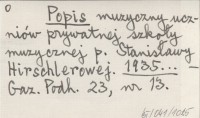 Popis muzyczny ucz-
niów prywatnej szkoły
muzycznej p. Stanisławy
Hirschlerowej. 1935...
Gaz. Podh. 23, nr 13.